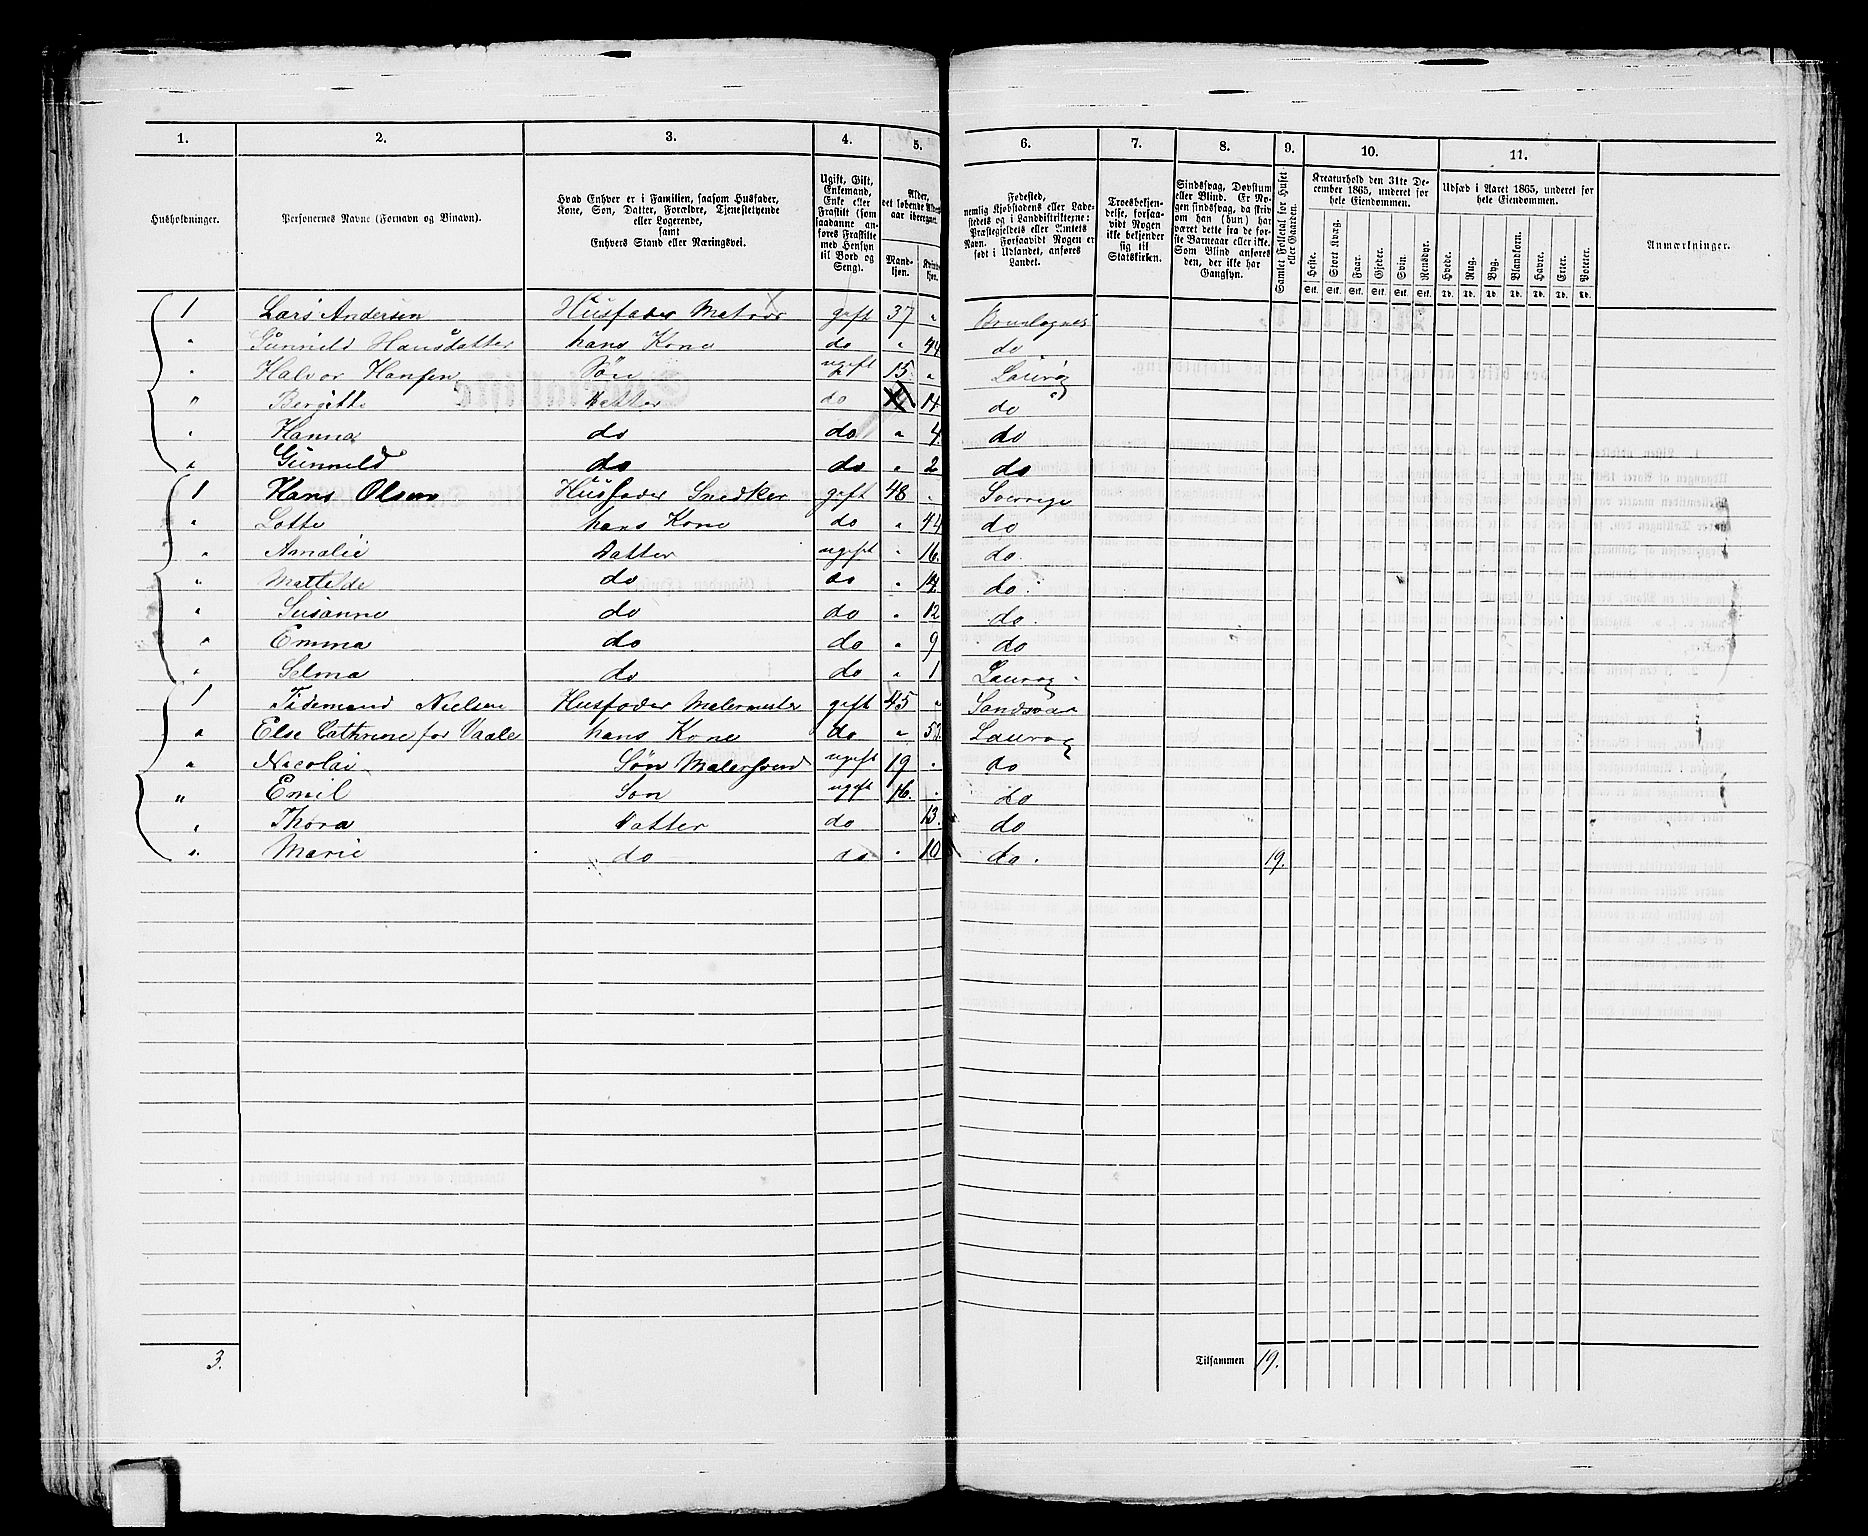 1. 2. 3. 4. 5. 6. 7. 8. 9. 10. 11.
Husholdninger.
Personernes Navne (Fornavn og Binavn).
Hvad Enhver er i Familien, saasom Husfader,
Kone, Søn, Datter, Forældre, Tjenestetyende
eller Logerende,
samt
Enhvers Stand eller Næringsvei.
Ugift, Gift,
Enkemand,
Enke eller
Fraskilt (som
saadanne an-
føres Fraskilte
med Hensyn
til Bord og
Seng).
Alder,
det løbende
aar iberegnet.
Mand-
kjøn.
Kvinde-
kjøn.
Fødested,
nemlig Kjøbstadens eller Lade-
stedets og i Landdistrikterne:
Præstegjeldets eller Amtets
Navn. Forsaavidt Nogen er
født i Udlandet, anføres
Landet.
Troesbekjen-
delse, forsaa-
vidt Nogen
ikke bekjender
sig til
Statskirken.
Sindssvag, Døvstum
eller Blind. Er No-
gen sindssvag, da skriv
om han (hun) har
været dette fra de før-
ste Barneaar eller ikke.
Som Blind ansøres
den, der ikke har
Gangsyn.
Samlet Folketal for Huset
eller Gaarden.
Kreaturhold den 31te De-
cember 1865, underet for
hele Eiendommen.
Heste. Stort Kvæg. Faar. Gjeder. Svin. Rensdyr.
Stk. Stk. Stk. Stk. Stk. Stk.
Udsæd i Aaret 1865, underet for
hele Eiendommen.
Hvede. Rug. Byg. Blandkorn. Havre. Erter. Poteter.
Td. Td. Td. Td. Td. Td. Td.
Anmærkninger.
1 Lars Andersen Husfader Matros gift 37 " Brunlagnes
" Gunnild Hansdatter hans Kone do " 44 do
" Halvor Hansen Søn ugift 15 " Laurvig
" Bergitte Datter do 14 do
" Hanna do do " 4 do
" Gunnild do do " 2 do
1 Hans Olsen Husfader Snedker gift 48 " Sverrige
" Lotte hans Kone do " 44 do
" Amalie Datter ugift " 16 do
" Matilde do do " 14 do
" Susanne do do " 12 do
" Emma do do " 9 do
" Selma do do " 1 Laurvig
1 Tidemand Nielsen Husfader Malermester gift 45 " Sandsvær
" Else Cathrine for Vaale hans Kone do " Laurvig
" Nicolai Søn Malersvend ugift 19 " do
" Emil Søn ugift 16 " do
" Thora Datter do 13 do
" Marie do do " 10 do 19.
3. Tilsammen 19.